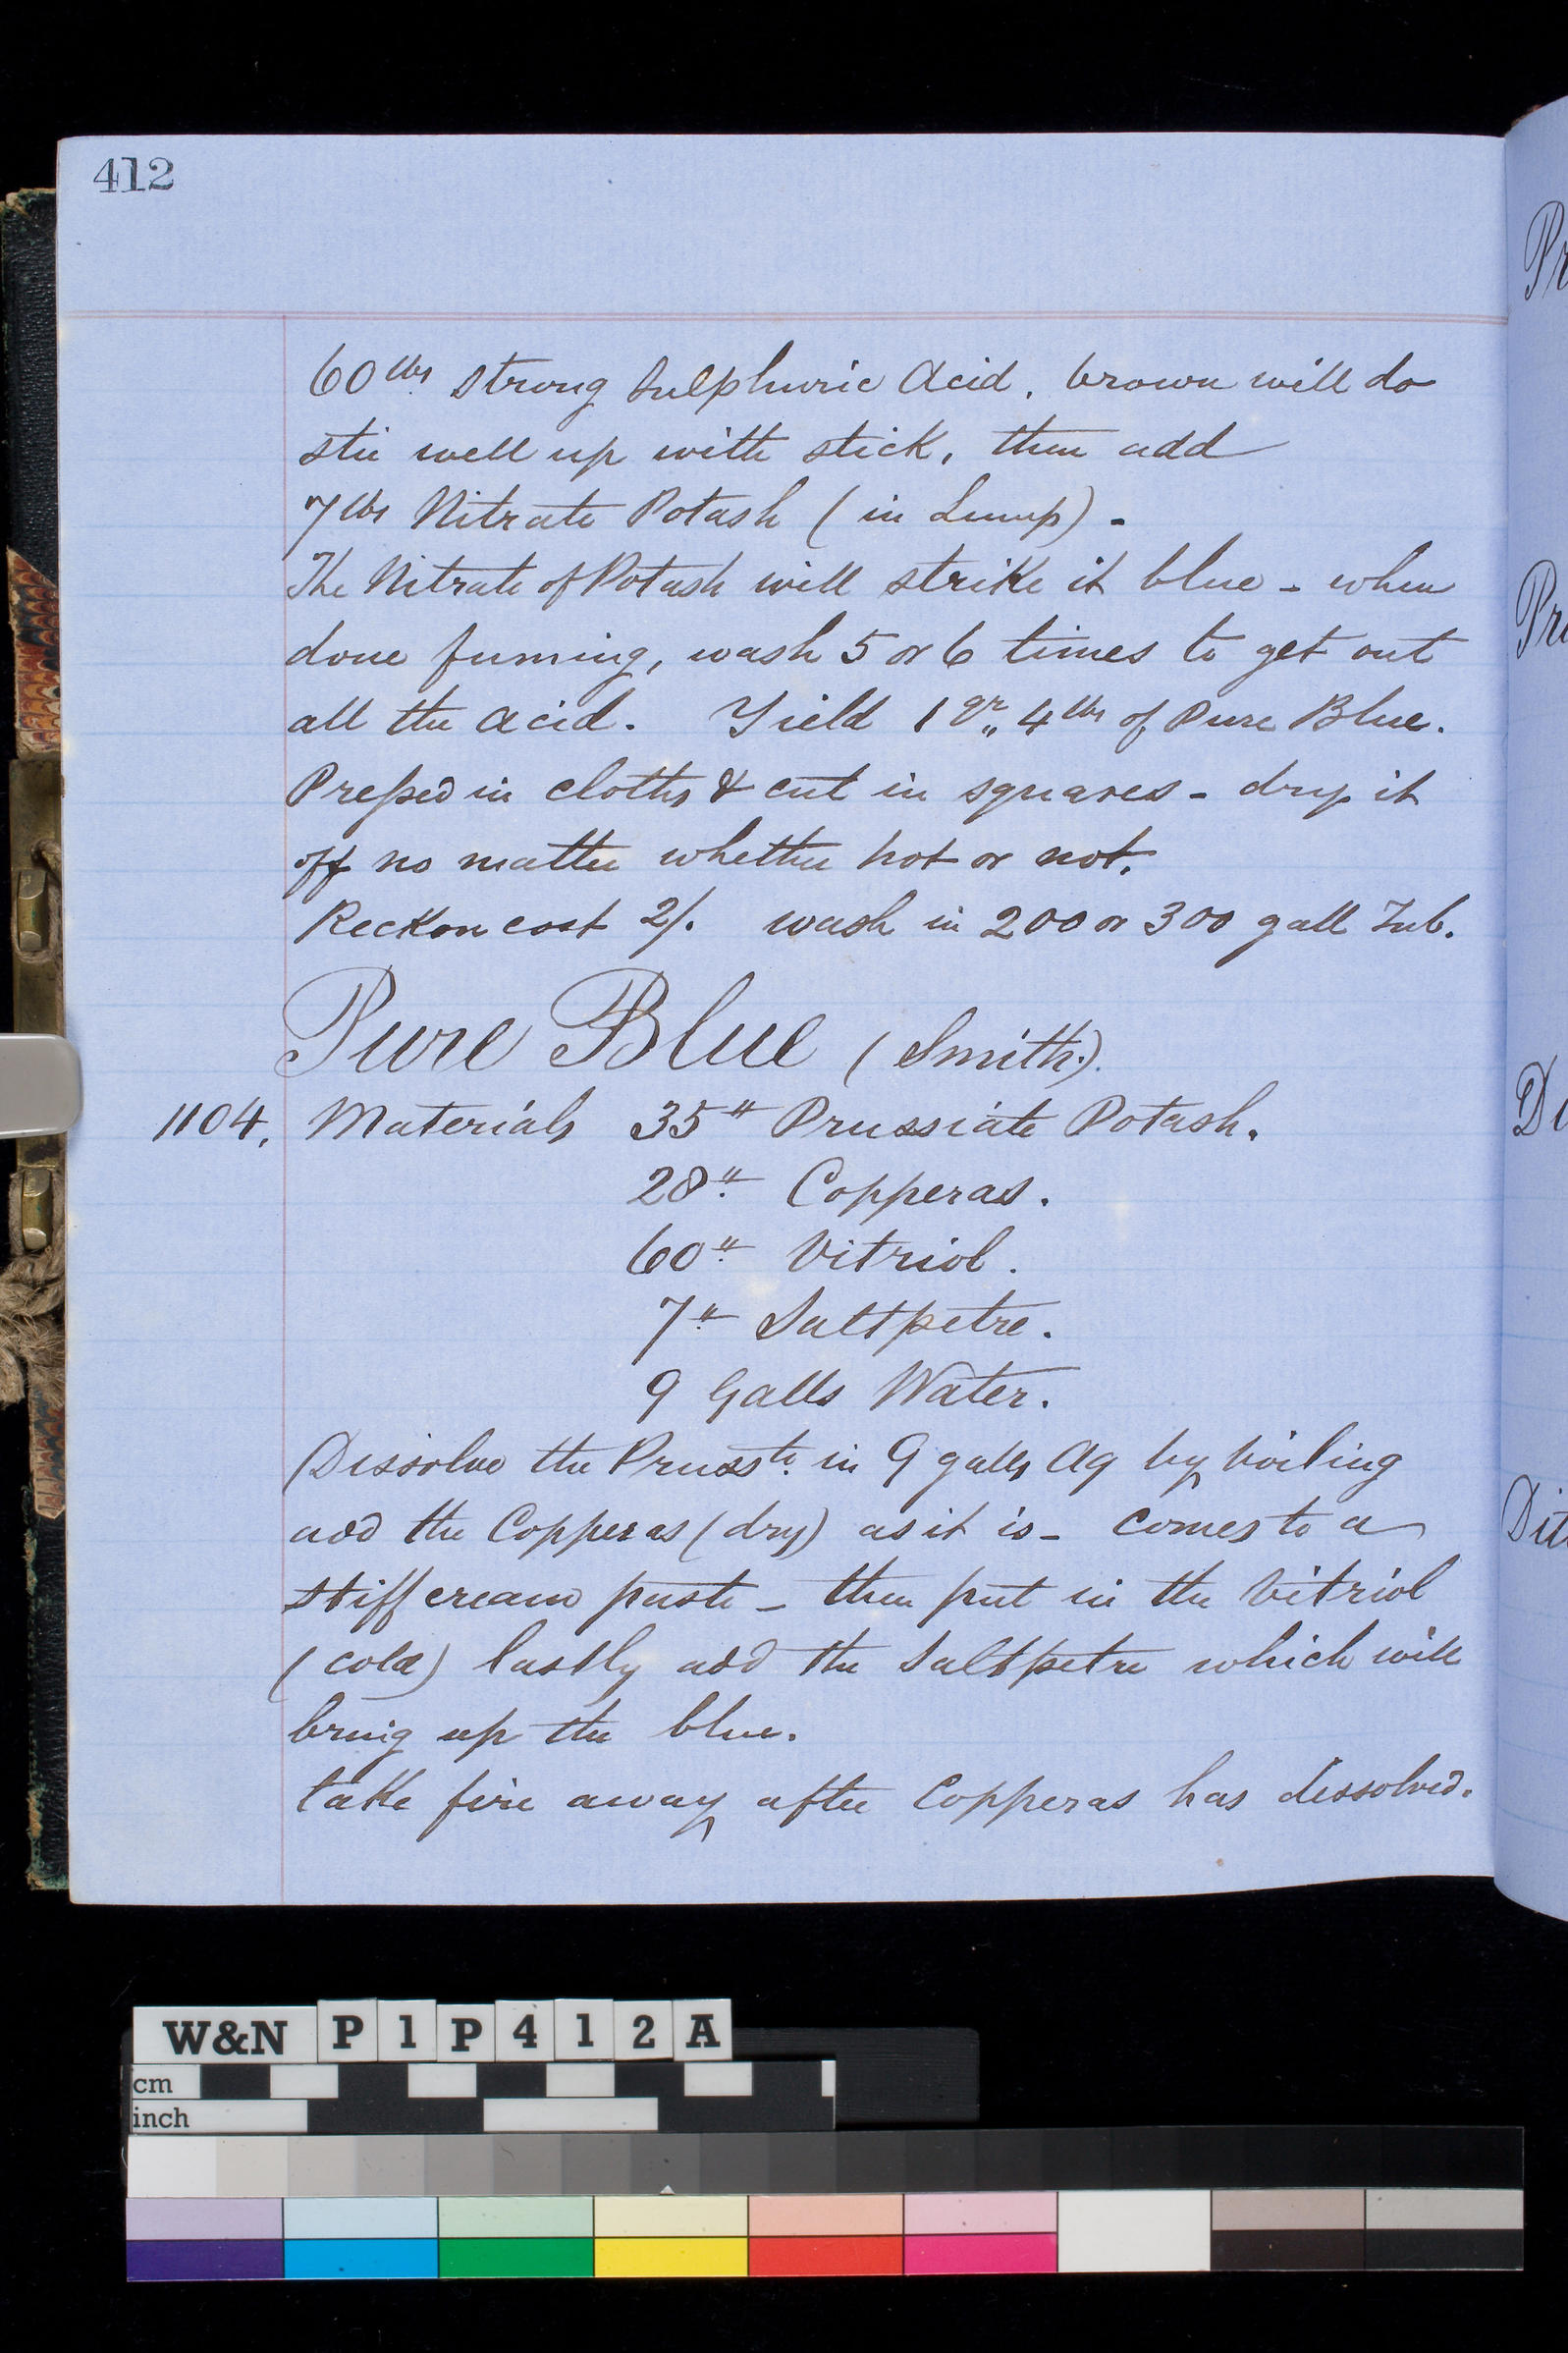 412
60 lbs strong Sulphuric Acid, brown will do
stir well up with stick, then add
7 lbs Nitrate Potash (in Lump).
The Nitrate of Potash will strike it blue - when
done fuming, wash 5 or 6 times to get out
all the acid. Yield 1 qr,, 4 lbs of Pure Blue.
Pressed in cloths & cut in squares - dry it
off no matter whether hot or not.
Reckon cost 2/. wash in 200 or 300 gall Tub.
Pure Blue (Smith.)
1104, Materials 35" Prussiate Potash.
28" Copperas.
60" Vitriol.
7" Saltpetre.
9 Galls Water.
Dissolve the Prusste. in 9 galls Aq by boiling
add the Copperas (dry) as it is - comes to a
stiff cream paste - then put in the Vitriol
(cold) lastly add the Saltpetre which will
bring up the blue.
take fire away after Copperas has dissolved.
Pr
Di
Dit
W&N P1P412A
cm
inch